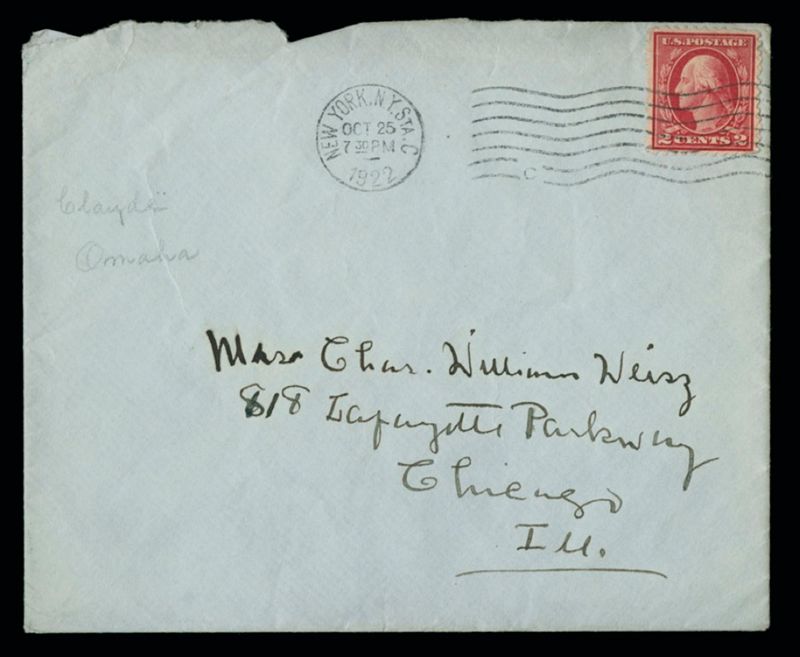 U.S. POSTAGE
2 CENTS 2
NEW YORK, N.Y. STA. C
OCT 25
7 30 PM
1922
C
Omaha
Mrs. Chas. William Weisz
818 Lafayette Parkway
Chicago
Ill.